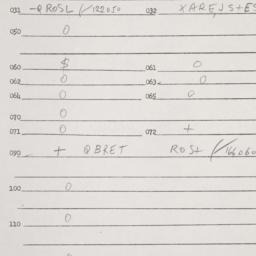 031 -QROSL /122050 032 XAREJSTES
050 0
060 $ 061 0
062 0 063 0
064 0 065 0
070 0
071 0 072 +
099 + QBRET ROST /166060
100 0
0
110